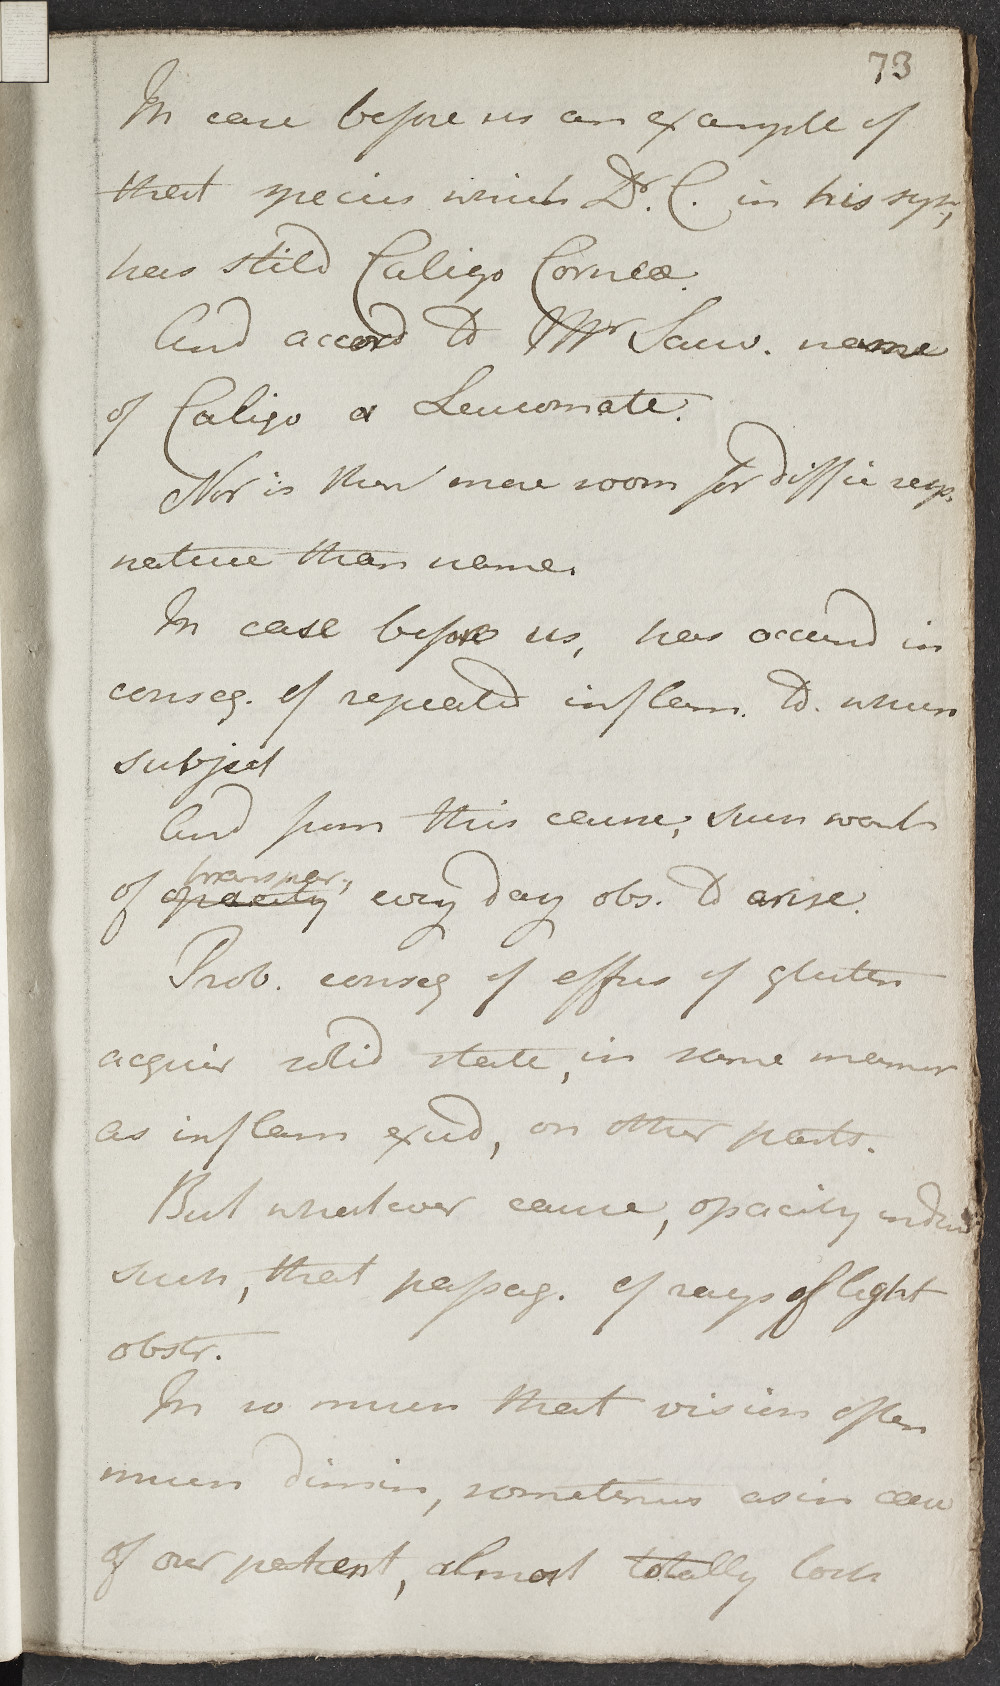 73
In case before us an example of
that species which Dr. C. in his syst,
has stild Caligo Corneæ.
And accord to Mr Sauv. name
of Caligo a Leucomate.
Nor is ther more room for diffic resp.
nature than name.
In case before us, has occurd in
conseq. of repeated inflam. to which
subject
And from this cause, such want
of transpar, opacity every day obs. to arise.
Prob. conseq of effus of gluten
acquir solid state, in same manner
as inflam exud, on other parts.
But whatever cause, opacity induc
such, that passag. of rays of light
obstr.
In so much that vision often
much dimin, sometimes as in case
of our patient, almost totally lost